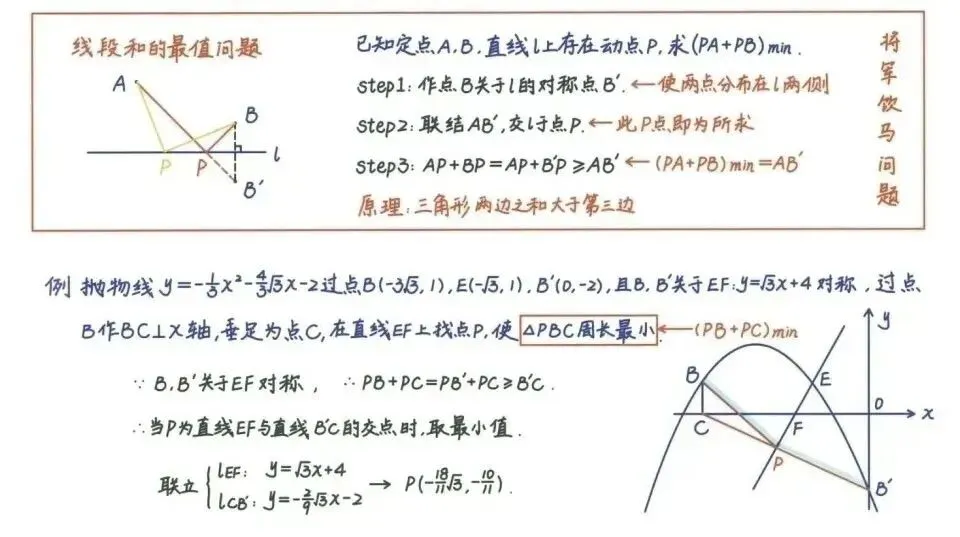 线段和的最值问题
A
B
P
P
l
B′
已知定点A,B,直线l上存在动点P,求(PA+PB)min.
step1:作点B关于l的对称点B′.←使两点分布在l两侧
step2:联结AB′,交l于点P.←此P点即为所求
step3:AP+BP=AP+B′P≥AB′←(PA+PB)min=AB′
原理:三角形两边之和大于第三边
将军饮马问题
例 抛物线y=-1/3x²-4/3√3x-2过点B(-3√3,1),E(-√3,1),B′(0,-2),且B,B′关于EF:y=√3x+4对称,过点
B作BC⊥X轴,垂足为点C,在直线EF上找点P,使△PBC周长最小←(PB+PC)min
∵ B,B′关于EF对称, ∴PB+PC=PB′+PC≥B′C.
∴当P为直线EF与直线B′C的交点时,取最小值.
联立{lEF: y=√3x+4
lCB′: y=-2/9√3x-2 → P(-18/11√3,-10/11).
y
B
E
C
F
O
x
P
B′